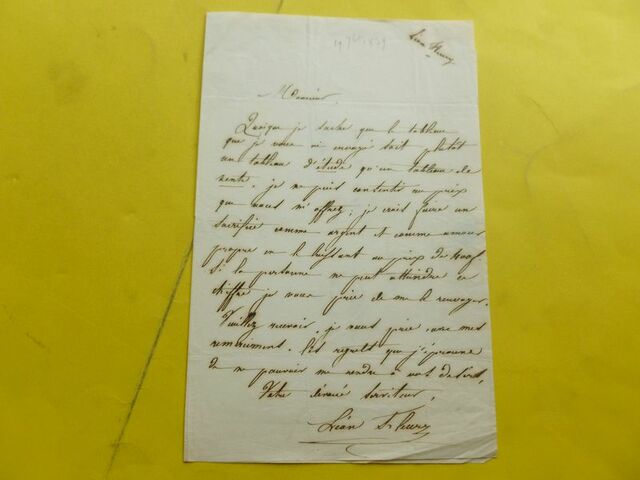 Léon Fleury
19 7bre 1839
Monsieur,
Quoique je sache que le tableau
que je vous ai envoyé soit plutôt
un tableau d'étude qu'un tableau de
vente, je ne puis consentir au prix
que vous m'offrez; je crois faire un
sacrifice comme argent et comme amour
propre en le laissant au prix de
Si la personne ne peut atteindre ce
chiffre je vous prie de me le renvoyer.
Veuillez recevoir, je vous prie avec mes
remerciments. Les regrets que j'éprouve
de ne pouvoir me rendre à vos désirs,
Votre dévoué serviteur,
Léon Fleury